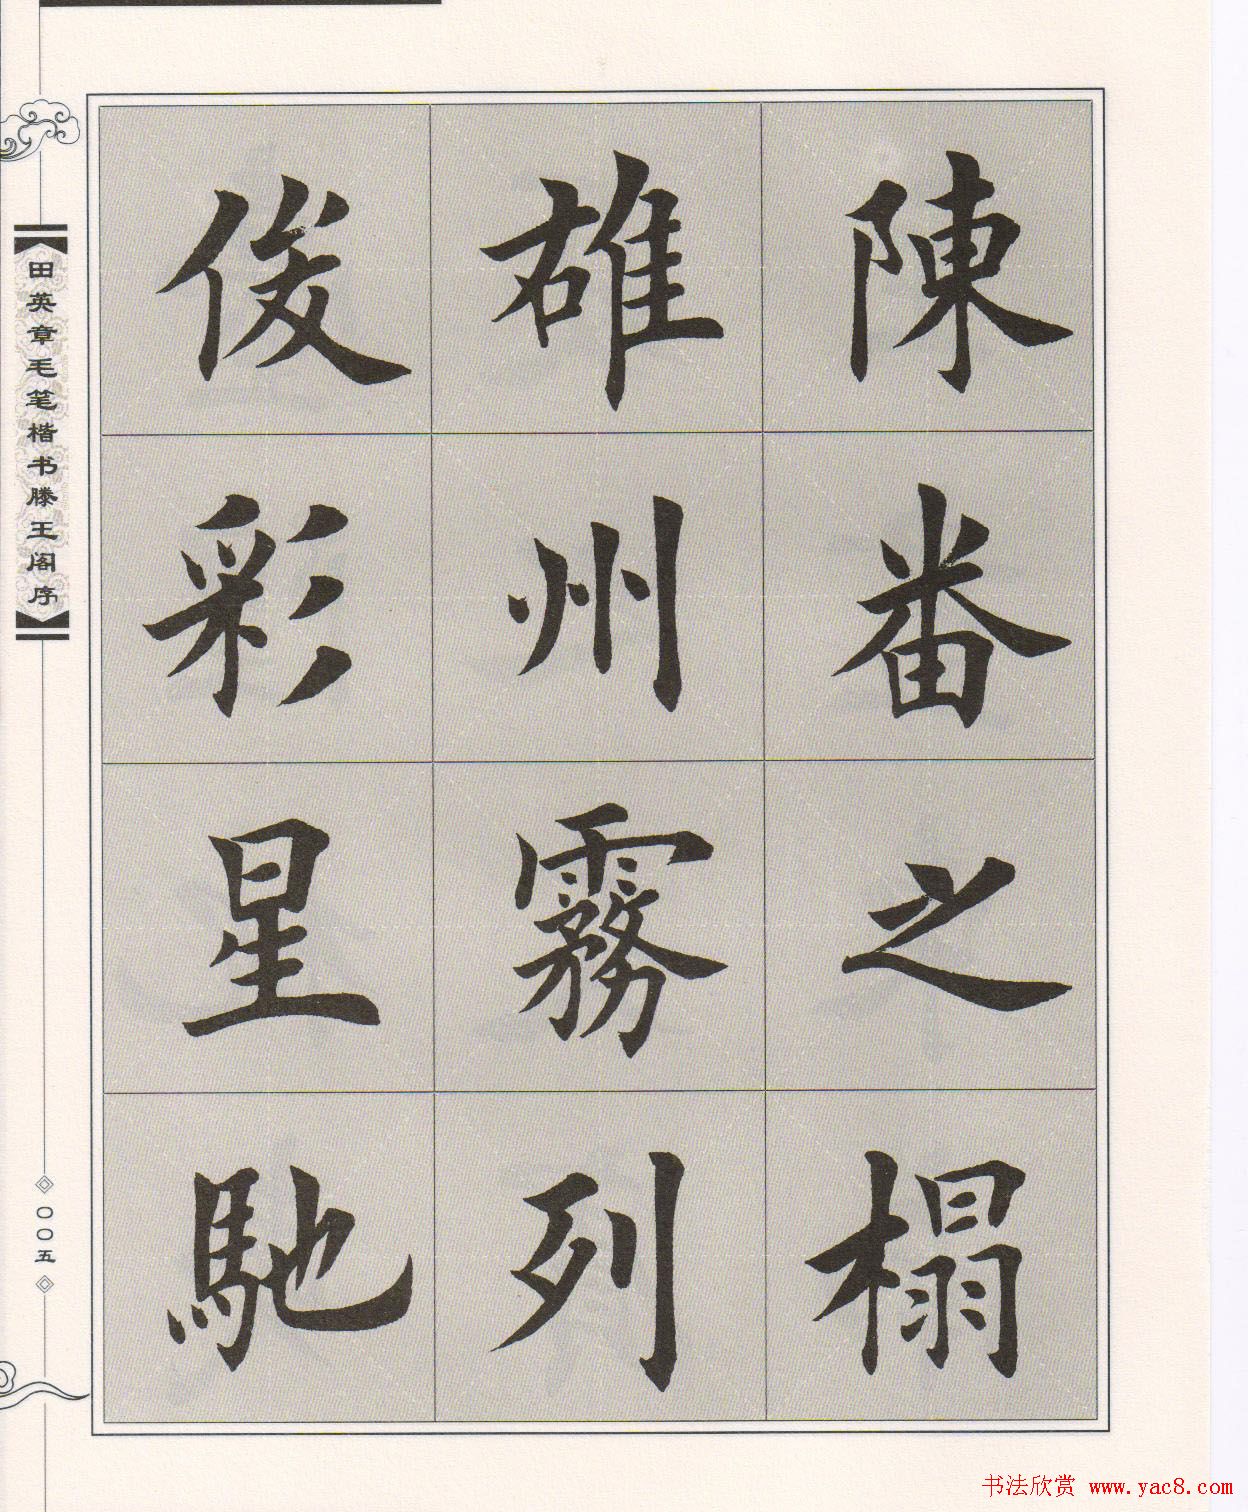 陳番之榻
雄州霧列
俊彩星馳
田英章毛笔楷书滕王阁序
〇〇五
书法欣赏 www.yac8.com